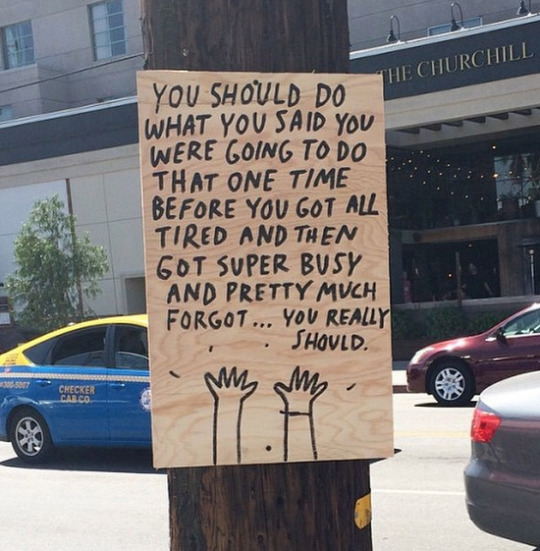 THE CHURCHILL
YOU SHOULD DO
WHAT YOU SAID YOU
WERE GOING TO DO
THAT ONE TIME
BEFORE YOU GOT ALL
TIRED AND THEN
GOT SUPER BUSY
AND PRETTY MUCH
FORGOT... YOU REALLY
SHOULD.
CHECKER
CAB CO.